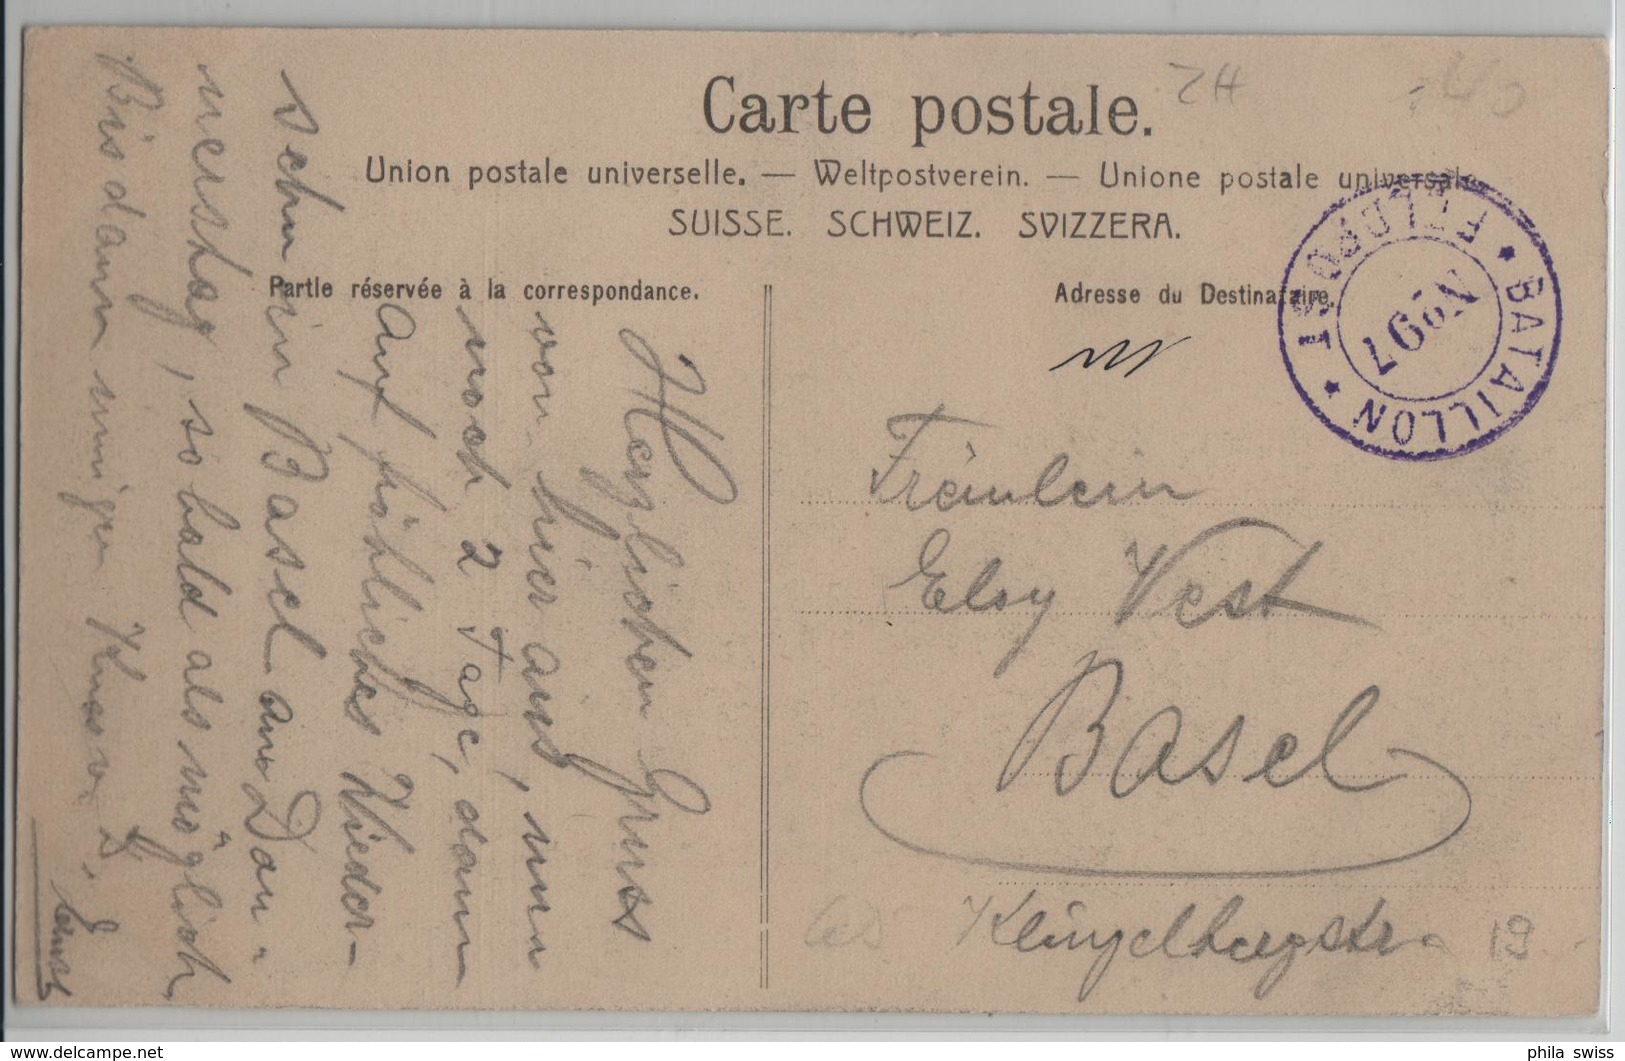 Carte postale.
Union postale universelle. — Weltpostverein. — Unione postale universale.
SUISSE. SCHWEIZ. SVIZZERA.
Partie réservée à la correspondance.
Adresse du Destinataire.
FELDPOST
* BATAILLON *
No 97
Herzlichen Gruss
von hier aus, nun
noch 2 Tage, dann
auf fröhliches Wieder-
sehn in Basel am Don-
nerstag, so bald als möglich,
Bis dann innigen Kuss v. D.
Fräulein
Elsy Vest
Basel
Klingelbergstr 19
phila swiss